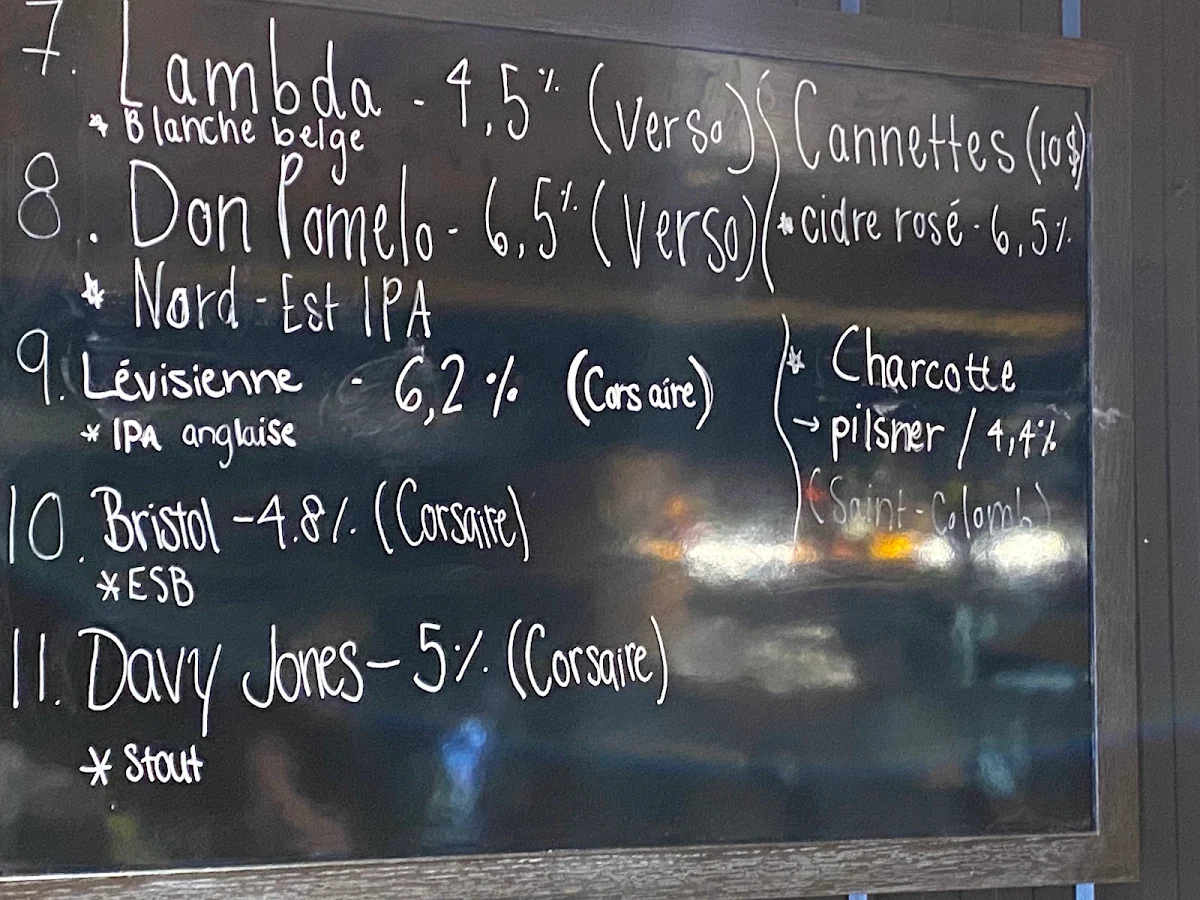 7. Lambda - 4,5% (Verso)
* Blanche belge
8. Don Pomelo - 6,5% (Verso)
* Nord-Est IPA
9. Lévisienne - 6,2% (Corsaire)
* IPA anglaise
10. Bristol - 4.8% (Corsaire)
* ESB
11. Davy Jones - 5% (Corsaire)
* Stout
Cannettes (10$)
* cidre rosé - 6,5%
* Charcotte
→ pilsner / 4,4%
(Saint-Colomb)